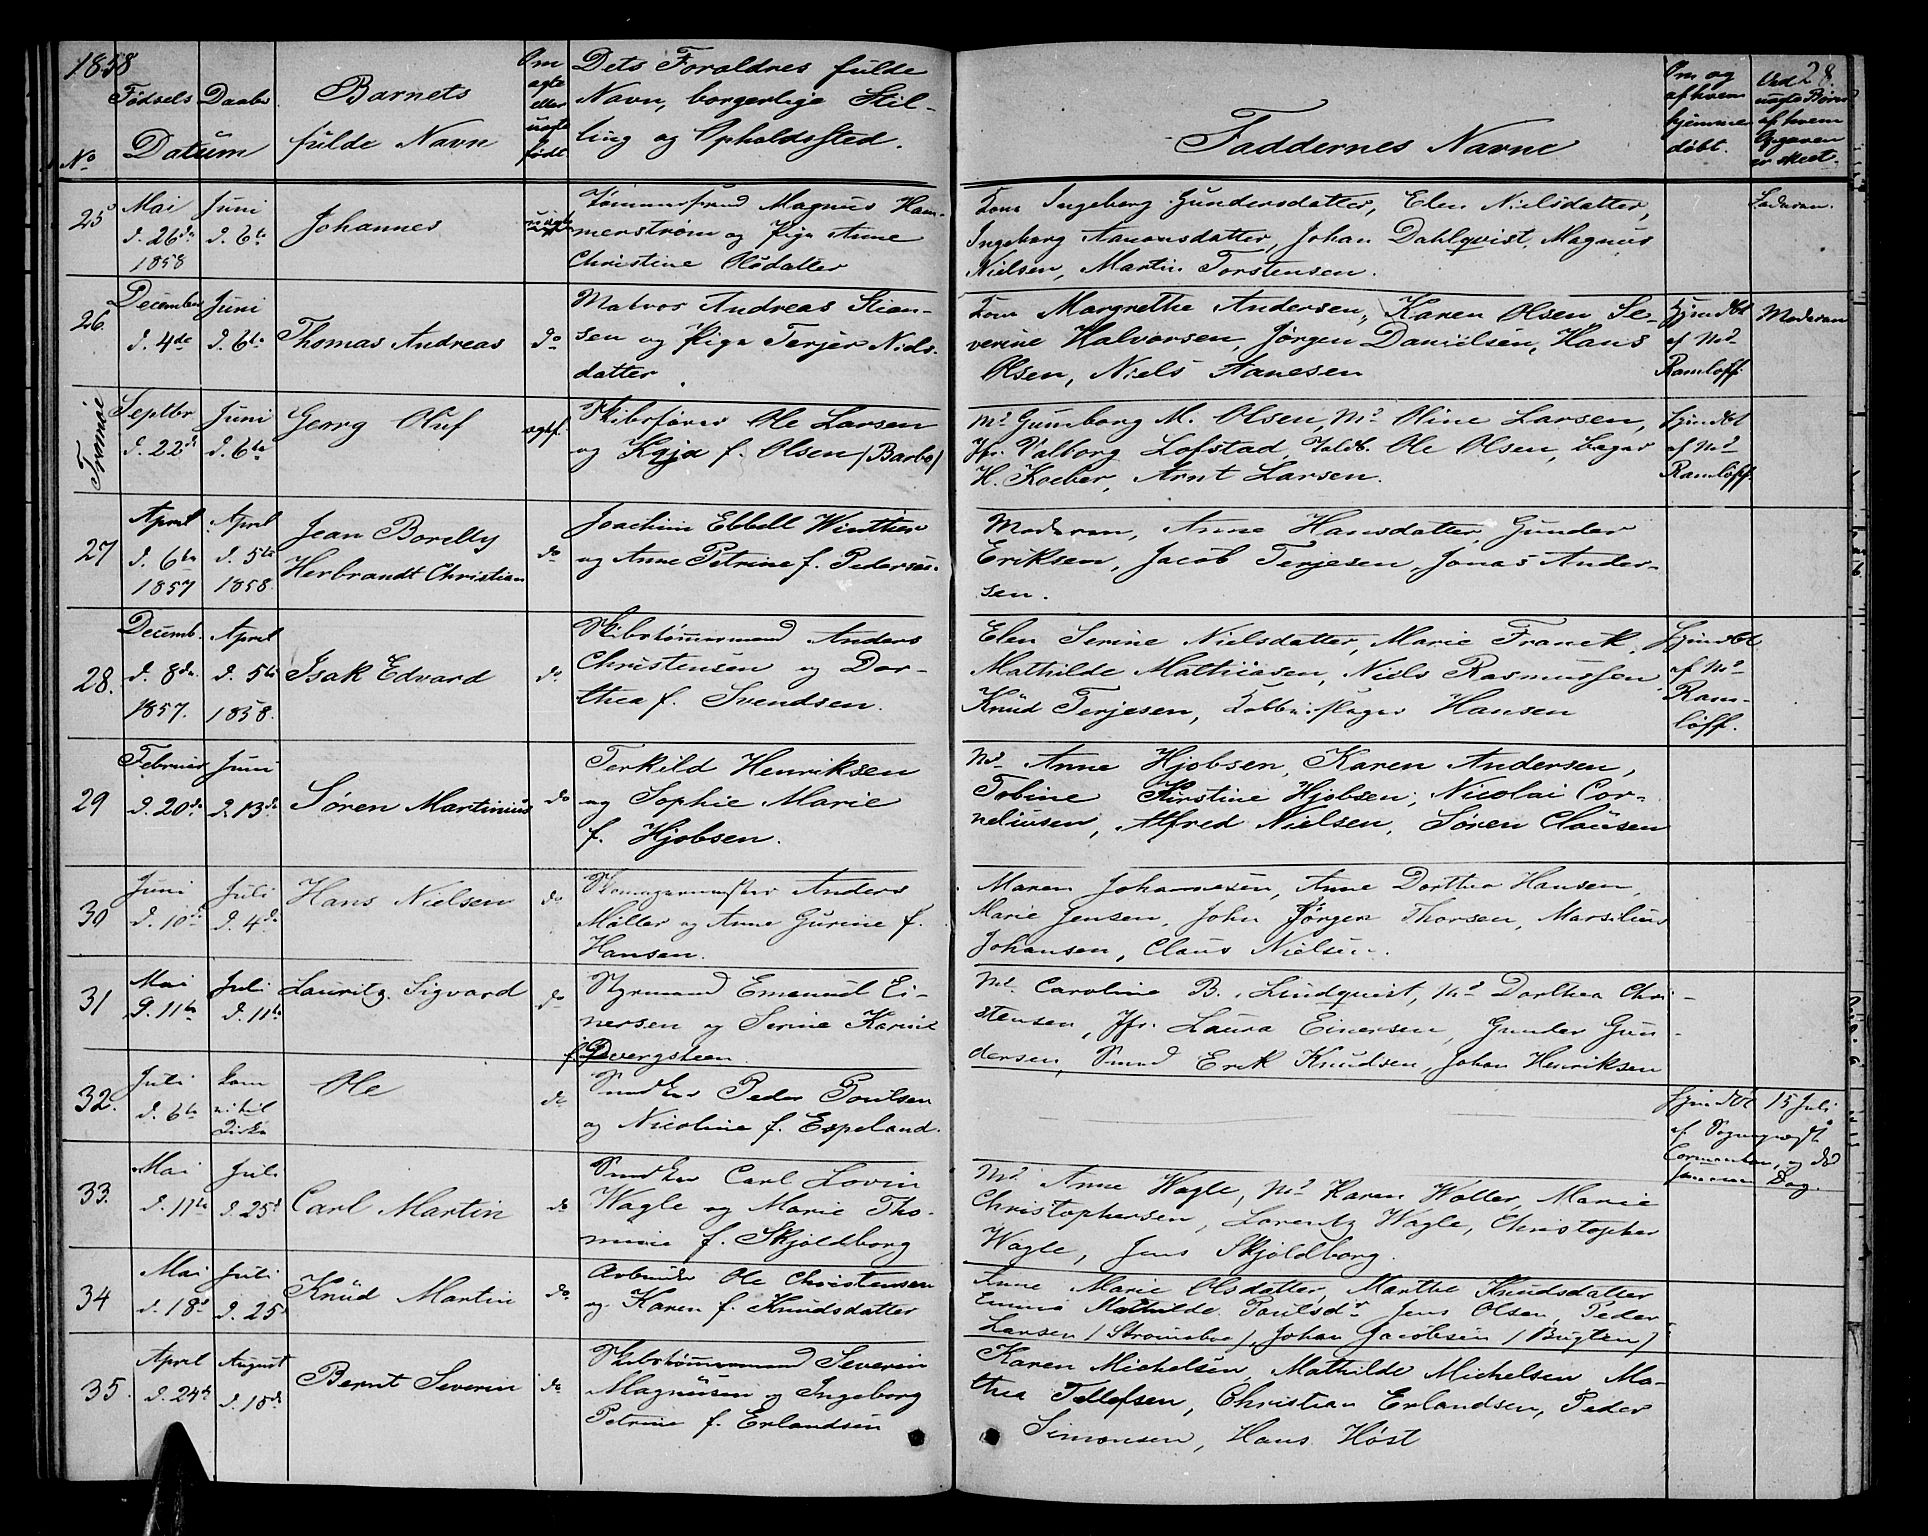 1858
28.
No
Fødsels Daabs
Datum
Barnets
fulde Navn
Om
ægte
eller
uægte
født.
Dets Forældres fulde
Navn, borgerlige Stil-
ling og Opholdssted.
Faddernes Navne
Om og
af hvem
hjemme
døbt.
Ved
uægte Børn
af hvem
Opgaven
er skeet.
25
Mai
d. 26de
1858
Juni
d. 6te
Johannes
uægte
Tømmermand Magnus Ham-
merstrøm og Pige Anne
Christine Olsdatter
Kone Ingeborg Gundersdatter, Elen Nielsdatter,
Ingeborg Aanonsdatter, Johan Dahlqvist, Magnus
Nielsen, Martin Torstensen.
Faderen.
26.
December
d. 4de
Juni
d. 6te
Thomas Andreas
do
Matros Andreas Stian-
sen og Pige Terjer Niels-
datter
Kone Margrethe Andersen, Karen Olsen Se-
verine Halvorsen, Jørgen Danielsen, Hans
Olsen, Niels Aanesen
Hjemdbt
af Md
Ramløff
Moderen
Septbr
d. 22d
Juni
d. 6te
Georg Oluf
ægtef.
Skibsfører Ole Larsen
og Kaja f. Olsen (Barbo)
Md Gunnborg M. Olsen, Md Oline Larsen,
Jfr. Valborg Lofstad, Ole Olsen, bager
H. Koeber, Arnt Larsen.
Hjemdbt
af Md
Ramløff
27
April
d. 6te
1857
April
d. 5te
1858.
Jean Borelly
Herbrandt Christian
do
Joachim Ebbell Winther
og Anne Petrine f. Pedersen.
Moderen, Anne Hansdatter, Gunder
Eriksen, Jacob Terjesen, Jonas Ander-
sen.
28.
Decemb.
d. 8de
1857.
April
d. 5te
1858.
Isak Edvard
do
Skibstømmermand Anders
Christensen og Dor-
thea f. Svendsen.
Elen Serine Nielsdatter, Marie Franck,
Mathilde Mathiasen, Niels Rasmussen
Knud Terjesen, Kobberslager Hansen
Hjemdbt
af Md
Ram-
løff.
29
Februar
d. 20de
Juni
d. 13de
Søren Martinius
do
Terkild Henriksen
og Sophie Marie
f. Hjobsen.
Md Anne Hjobsen, Karen Andersen,
Tobine Kirstine Hjobsen, Nicolai Cor-
neliusen, Alfred Nielsen, Søren Clausen
30
Juni
d. 10de
Juli
d. 4de
Hans Nielsen
do
Skomagermester Anders
Møller og Anne Gurine f.
Hansen.
Maren Johannesen, Anne Dorthea Hansen,
Marie Jensen, John Jørgen Thorsen, Marsilius
Johansen, Claus Nielsen.
31
Mai
d. 11te
Juli
d. 11te
Lauritz Sigvard
do
Styrmand Emanuel Ei-
nersen og Serine Karine
f. Dvergsteen.
Md. Caroline B. Lindquist, Md Dorthea Chri-
stensen, Jfr. Laura Einersen, Gunder Gun-
dersen, Smed Erik Knudsen, Johan Henriksen
32.
Juli
d. 6te
kom
ei til
Kirke
Ole
do
Snedker Peder Poulsen
og Nicoline f. Espeland.
Hjemdbt 15 Juli
af Sognepræst
og død
samme Dag.
33.
Mai
d. 11te
Juli
d. 25d
Carl Martin
do
Snedker Carl Lovin
Wagle og Marie Tho-
mine f. Skjoldborg
Md Anne Wagle, Md Karen Woller, Marie
Christophersen, Lorentz Wagle, Christopher
Wagle, Jens Skjoldborg.
34
Mai
d. 18d
Juli
d. 25d
Knud Martin
do
Arbeider Ole Christensen
og Karen f. Knudsdatter
Anne Marie Olsdatter, Marthe Knudsdatter
Emma Mathilde Poulsdr Jens Olsen, Peder
Larsen (Strømsboe), Johan Jacobsen (Bugten)
35.
April
d. 24de
August
d. 15de
Bernt Severin
do
Skibstømmermand Severin
Magnusen og Ingeborg
Petrine f. Erlandsen
Karen Michelsen, Mathilde Michelsen Ma-
thea Tellefsen, Christian Erlandsen, Peder
Simonsen, Hans Høst